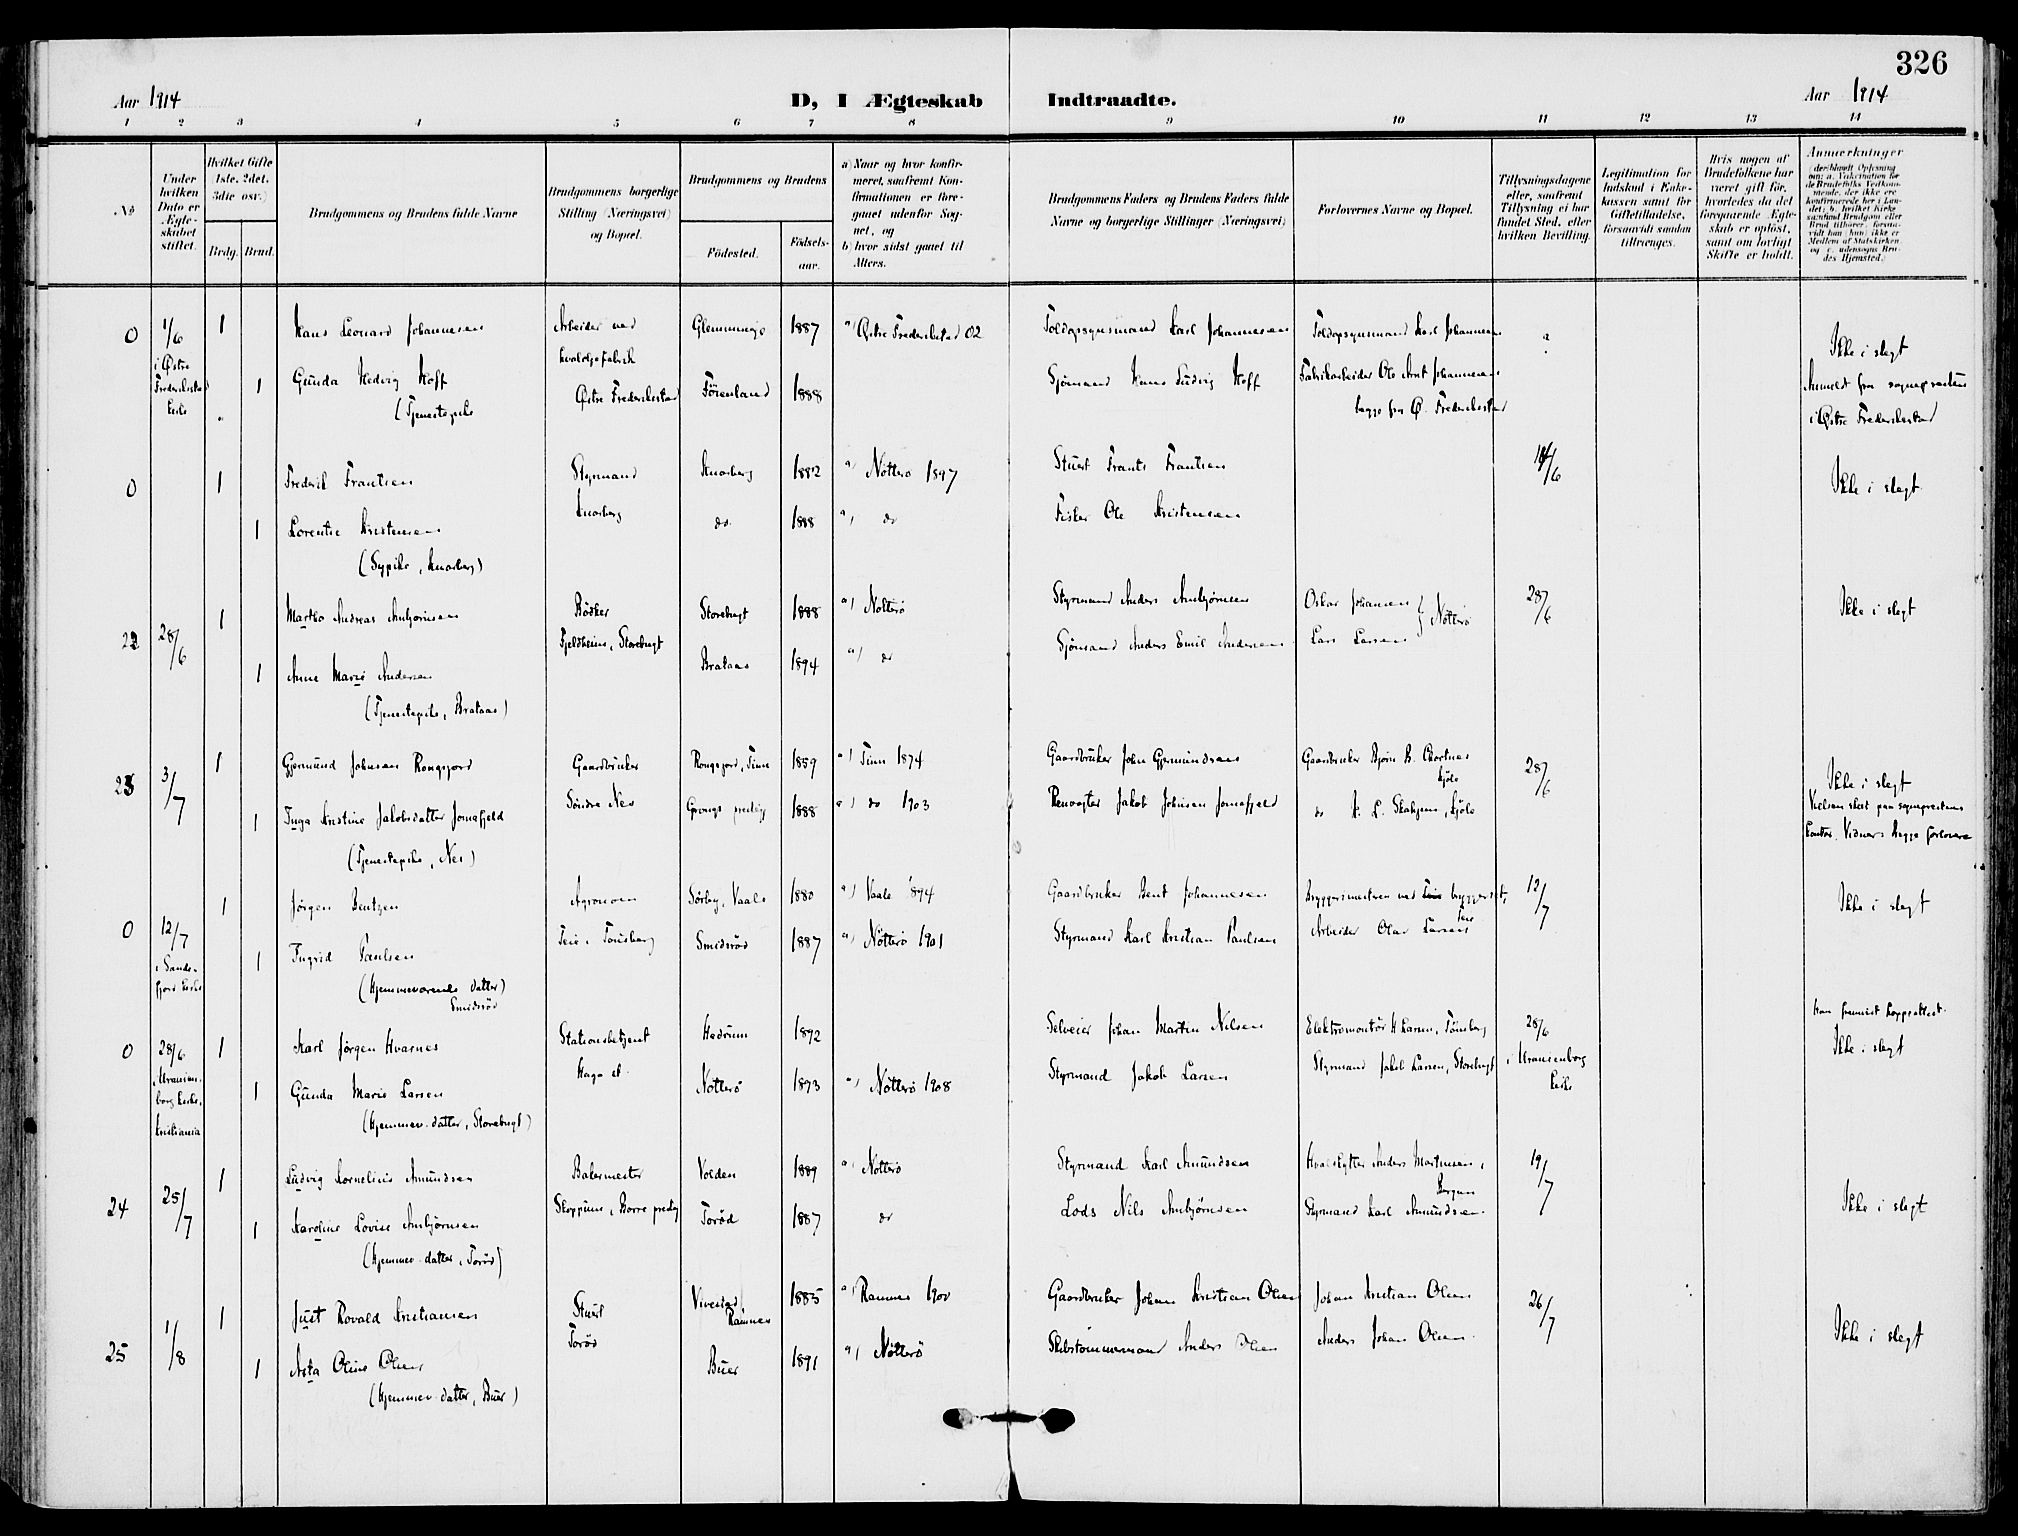 326
Aar 1914
D, I Ægteskab Indtraadte.
Aar 1914
1 2 3 4 5 6 7 8 9 10 11 12 13 14
No
Under hvilken Dato er Ægteskabet stiftet.
Hvilket Gifte (1ste, 2det, 3die osv.)
Brdg. Brud.
Brudgommens og Brudens fulde Navne
Brudgommens borgerlige Stilling (Næringsvei) og Bopæl.
Brudgommens og Brudens
Fødested.
Fødselsaar.
a) Naar og hvor konfirmeret, saafremt Konfirmationen er foregaaet udenfor Sognet, og
b) hvor sidst gaaet til Alters.
Brudgommens Faders og Brudens Faders fulde Navne og borgerlige Stillinger (Næringsvei)
Forlovernes Navne og Bopæl.
Tillysningsdagene eller, saafremt Tillysning ei har fundet Sted, efter hvilken Bevilling.
Legitimation for Indskud i Enkekassen samt for Giftetilladelse, forsaavidt saadan tiltrænges.
Hvis nogen af Brudefolkene har været gift før, hvorledes da det foregaaende Ægteskab er opløst, samt om lovligt Skifte er holdt.
Anmerkninger
0 1/6 1 Hans Leonard Johannesen Arbeider ved Glemminge 1887 a) Østre Frederikstad 02 Toldopsynsmand Karl Johannesen Toldopsynsmand Karl Johannesen
i Østre Frederikstad kirke
1 Gunda Hedvig Hoff Østre Frederikstad 1888 Sjømand Hans Ludvig Hoff Fabrikarbeider Ole Arnt Johannesen
(Tjenestepike begge fra Ø. Frederikstad
Ikke i slegt
Anmeldt fra sognepresten
i Østre Frederikstad
0 1 Frederik Frantsen Styrmand Knarberg 1882 a) Nøtterø 1897 Stuert Frants Frantsen 14/6 Ikke i slegt
1 Lorentse Kristensen Knarberg do. 1888 a) do Fisker Ole Kristensen
(Sypike, Knarberg)
22 28/6 1 Andreas Anbjørnsen Bødker Storebugt 1888 a) Nøtterø Styrmand Anders Anbjørnsen Oskar Johansen } Nøtterø 28/6 Ikke i slegt
Fjeldheim, Storebugt
1 Anne Marie Andersen Brataas 1894 a) do Sjømand Anders Emil Andersen Lars Larsen
(Tjenestepike, Brataas)
23 3/7 1 Gjermund Johnsen Gaardbruker 1859 a) Tinn 1874 Gaardbruker John Gjermundsen Gaardbruker Bjørn B. 28/6 Ikke i slegt
Søndre Nes
1 Inga Kristine Jakobsdatter Jomafjeld 1888 a) do 1903 Jakob Johnsen Jomafjeld do
(Tjenestepike, Nes)
Vielsen sket paa sogneprestens
kontor. Vidner: begge forlovere
0 12/7 1 Jørgen Bentzen Agronom Sørby, Vaale 1880 a) Vaale 1894 Gaardbruker Bent Johannesen 12/7 Ikke i slegt
i Sandefjord kirke
1 Ingrid Paulsen Teie, Tønsberg Smidsrød 1887 a) Nøtterø 1901 Styrmand Karl Kristian Paulsen Arbeider Olav Larsen
(Hjemmeværende datter)
Smidsrød
0 28/6 1 Karl Jørgen Hvarnes Stationsbetjent Hedrum 1892 Selveier Johan Martin Nilsen Elektromontør H Larsen, Tønsberg 28/6 Ikke i slegt
i Uranienborg kirke, Kristiania
1 Gunda Marie Larsen Nøtterø 1893 a) Nøtterø 1908 Styrmand Jakob Larsen Styrmand Jakob Larsen, Storebugt i Uranienborg kirke
(Hjemmev. datter, Storebugt)
24 25/7 1 Ludvig Kornelius Amundsen Bakermester Volden 1889 a) Nøtterø Styrmand Karl Amundsen Hvalskytter Anders Martinsen, Bergan 19/7 Ikke i slegt
Skoppum, Borre prestegj
1 Karoline Lovise Anbjørnsen Torød 1887 do Lods Nils Anbjørnsen Styrmand Karl Amundsen
(Hjemmev. datter, Torød)
25 1/8 1 Just Rovald Kristiansen Stuert Vivestad, Ramnes 1885 a) Ramnes 1900 Gaardbruker Johan Kristian Olsen Johan Kristian Olsen 26/7 Ikke i slegt
Torød
1 Asta Oline Olsen Buer 1891 a) Nøtterø Skibstømmermand Anders Olsen Anders Johan Olsen
(Hjemmev. datter, Buer)